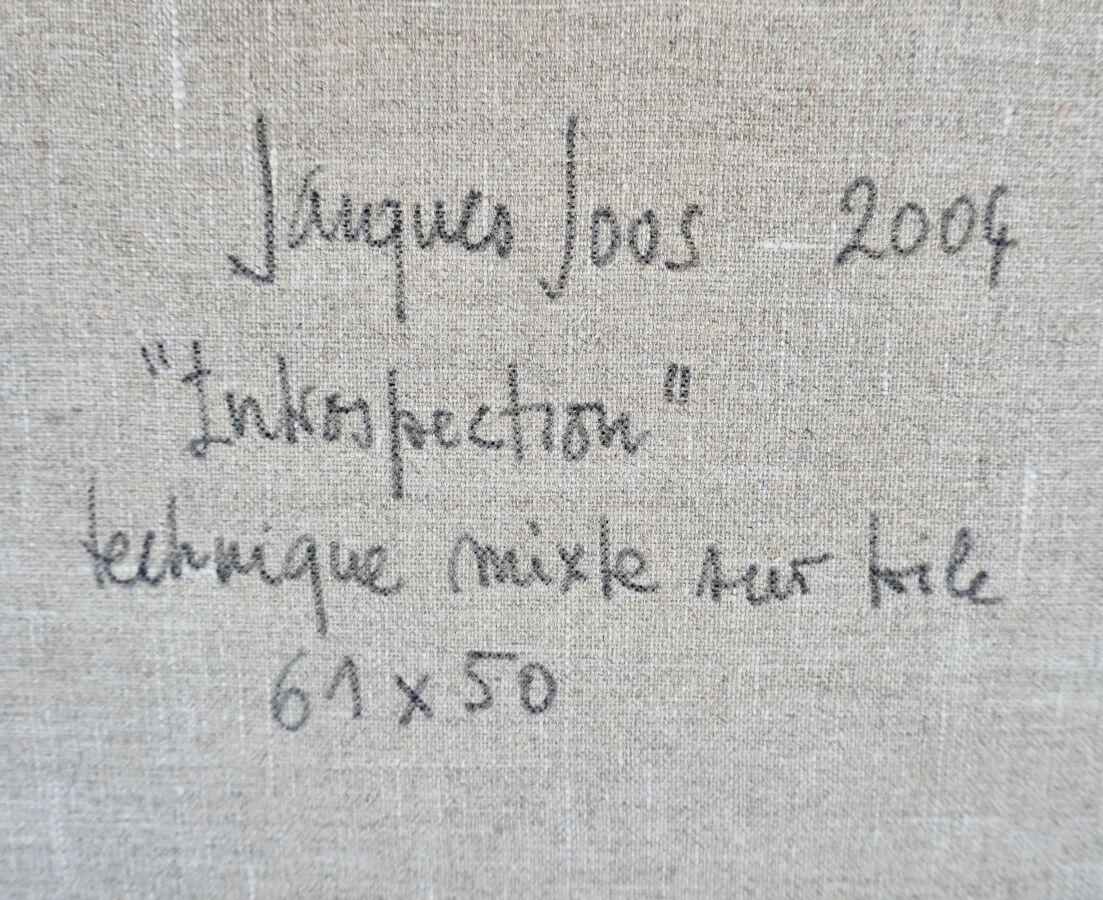 Jacques Joos 2004
"Introspection"
technique mixte sur toile
61 x 50